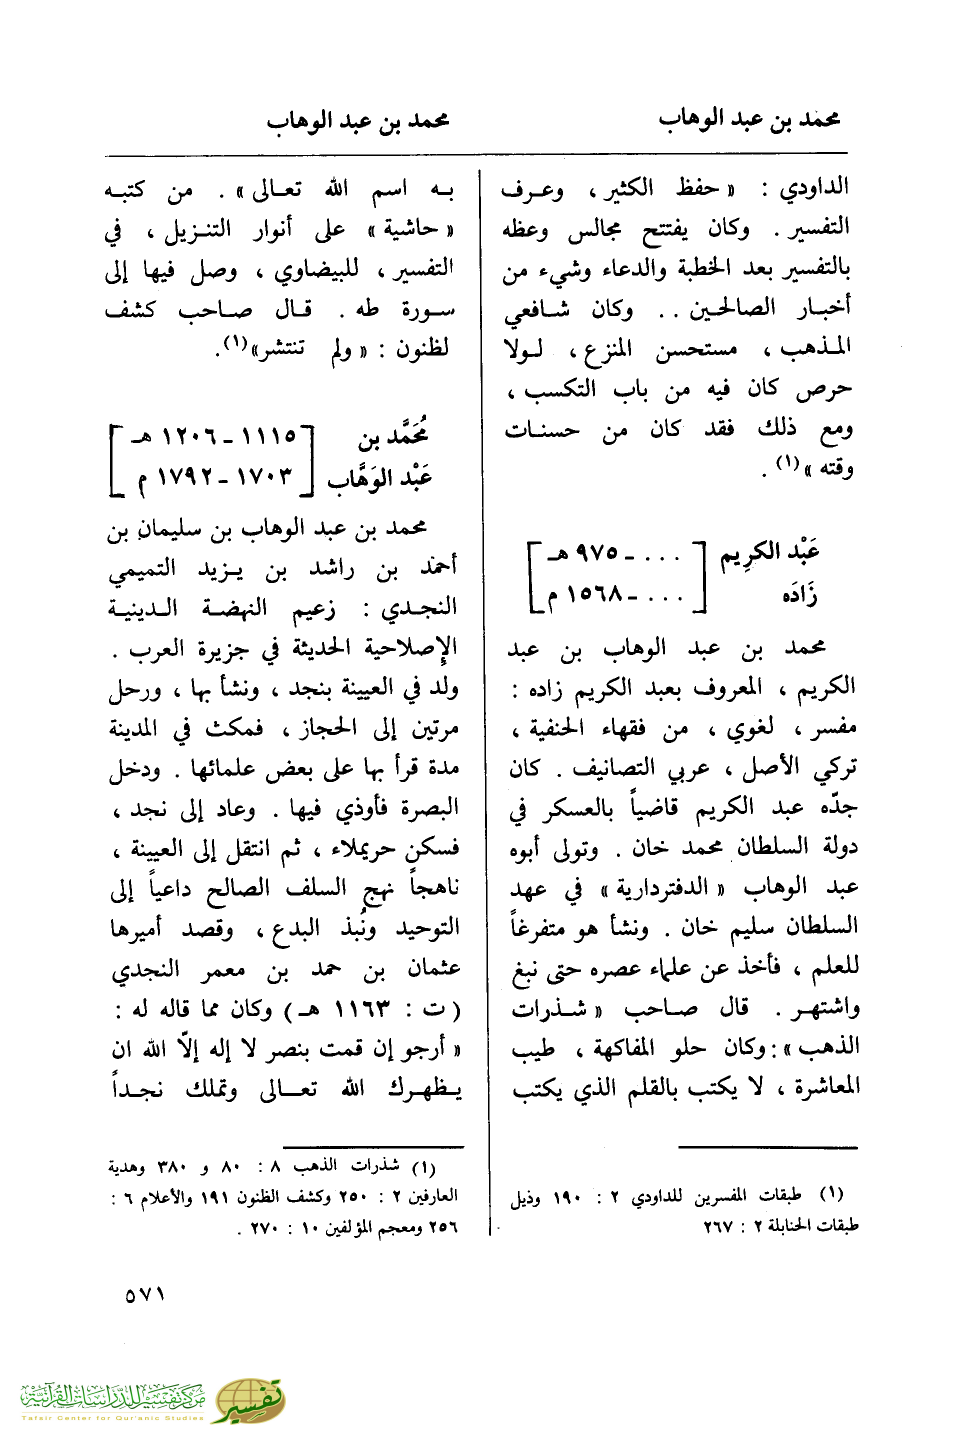 محمد بن عبد الوهاب
محمد بن عبد الوهاب
الداودي : « حفظ الكثير ، وعرف
التفسير . وكان يفتتح مجالس وعظه
بالتفسير بعد الخطبة والدعاء وشيء من
أخبار الصالحين .. وكان شافعي
المذهب ، مستحسن المنزع ، لولا
حرص كان فيه من باب التكسب ،
ومع ذلك فقد كان من حسنات
وقته »(١) .
عَبْد الكريم [ ... ـ ٩٧٥ هـ ]
زَادَه [ ... ـ ١٥٦٨ م ]
محمد بن عبد الوهاب بن عبد
الكريم ، المعروف بعبد الكريم زاده :
مفسر ، لغوي ، من فقهاء الحنفية ،
تركي الأصل ، عربي التصانيف . كان
جدّه عبد الكريم قاضياً بالعسكر في
دولة السلطان محمد خان . وتولى أبوه
عبد الوهاب « الدفتردارية » في عهد
السلطان سليم خان . ونشأ هو متفرغاً
للعلم ، فأخذ عن علماء عصره حتى نبغ
واشتهر . قال صاحب « شذرات
الذهب » : وكان حلو المفاكهة ، طيب
المعاشرة ، لا يكتب بالقلم الذي يكتب
(١) طبقات المفسرين للداودي ٢ : ١٩٠ وذيل
طبقات الحنابلة ٢ : ٢٦٧
به اسم الله تعالى » . من كتبه
« حاشية » على أنوار التنزيل ، في
التفسير ، للبيضاوي ، وصل فيها إلى
سورة طه . قال صاحب كشف
لظنون : « ولم تنتشر »(١) .
مُحَمَّد بن [ ١١١٥ ـ ١٢٠٦ هـ ]
عَبْد الوَهَّاب [ ١٧٠٣ ـ ١٧٩٢ م ]
محمد بن عبد الوهاب بن سليمان بن
أحمد بن راشد بن يزيد التميمي
النجدي : زعيم النهضة الدينية
الإصلاحية الحديثة في جزيرة العرب .
ولد في العيينة بنجد ، ونشأ بها ، ورحل
مرتين إلى الحجاز ، فمكث في المدينة
مدة قرأ بها على بعض علمائها . ودخل
البصرة فأوذي فيها . وعاد إلى نجد ،
فسكن حريملاء ، ثم انتقل إلى العيينة ،
ناهجاً نهج السلف الصالح داعياً إلى
التوحيد ونُبذ البدع ، وقصد أميرها
عثمان بن حمد بن معمر النجدي
( ت : ١١٦٣ هـ ) وكان مما قاله له :
« أرجو إن قمت بنصر لا إله إلاّ الله ان
يظهرك الله تعالى وتملك نجداً
(١) شذرات الذهب ٨ : ٨٠ و ٣٨٠ وهدية
العارفين ٢ : ٢٥٠ وكشف الظنون ١٩١ والأعلام ٦ :
٢٥٦ ومعجم المؤلفين ١٠ : ٢٧٠ .
٥٧١
مركز تفسير للدراسات القرآنية
Tafsir Center for Qur'anic Studies
تفسير